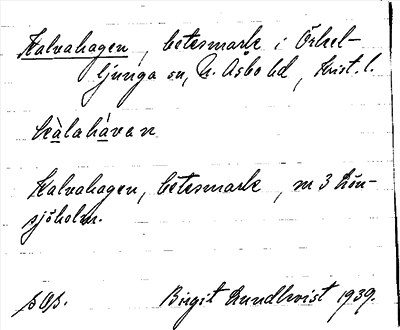 Kalvahagen, betesmark i Örkel-
ljunga sn, N. Åsbo hd, Krist. l.
kàlahávan
Kalvahagen, betesmark, m 3 Lön-
sjöholm.
Birgit Rundkvist 1939.